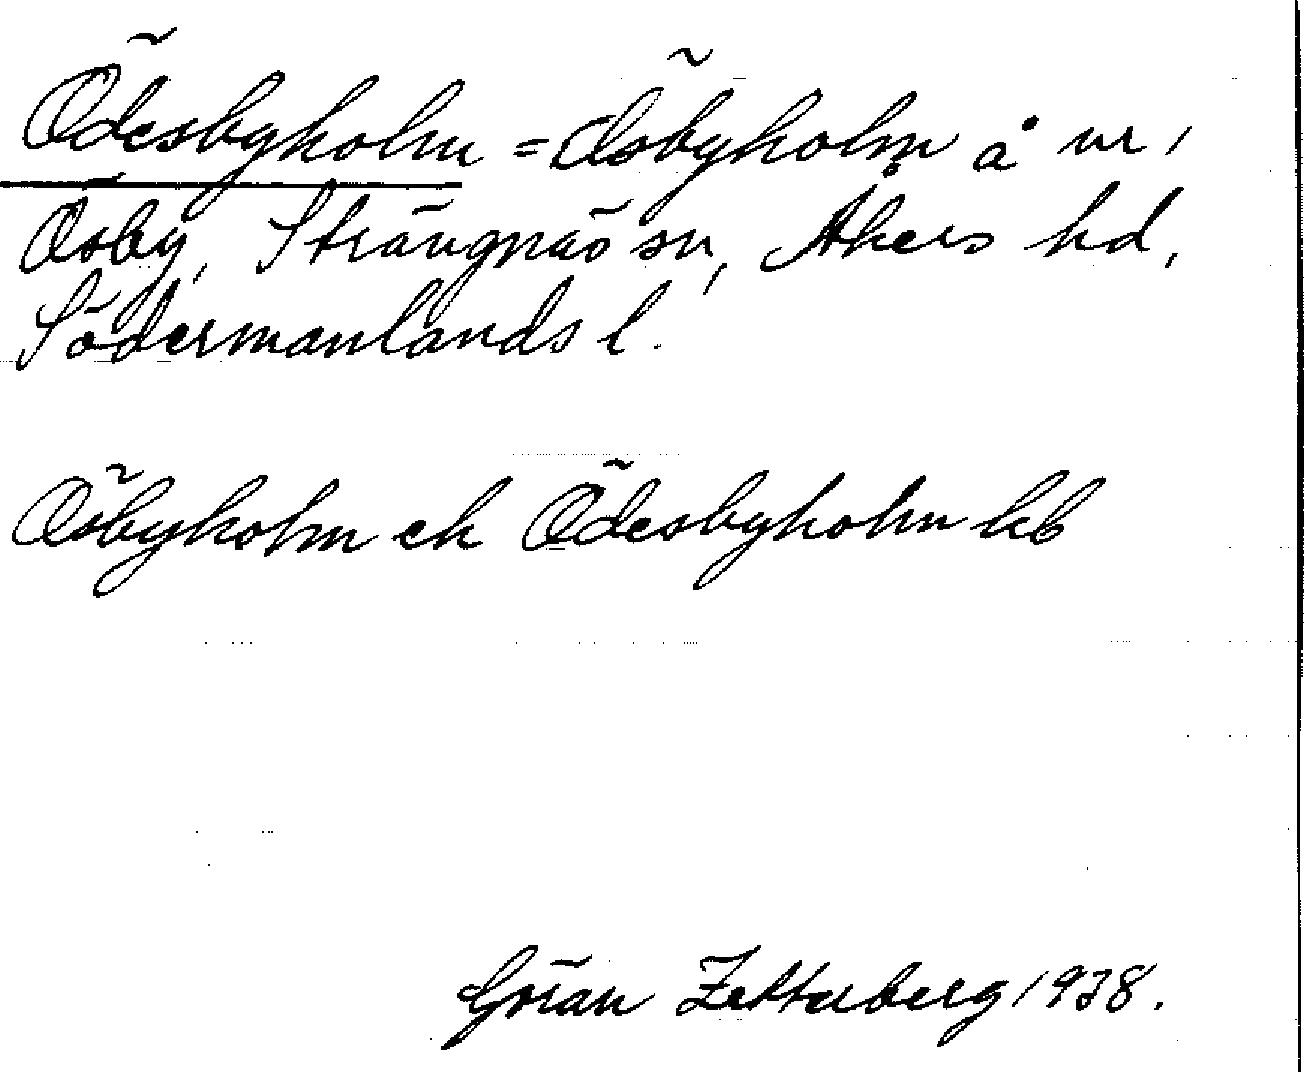 Ödesbyholm = Ösbyholm å nr 1
Ösby, Strängnäs sn, Åkers hd,
Södermanlands l.
Ösbyholm ek Ödesbyholm kb
Göran Zetterberg 1938.